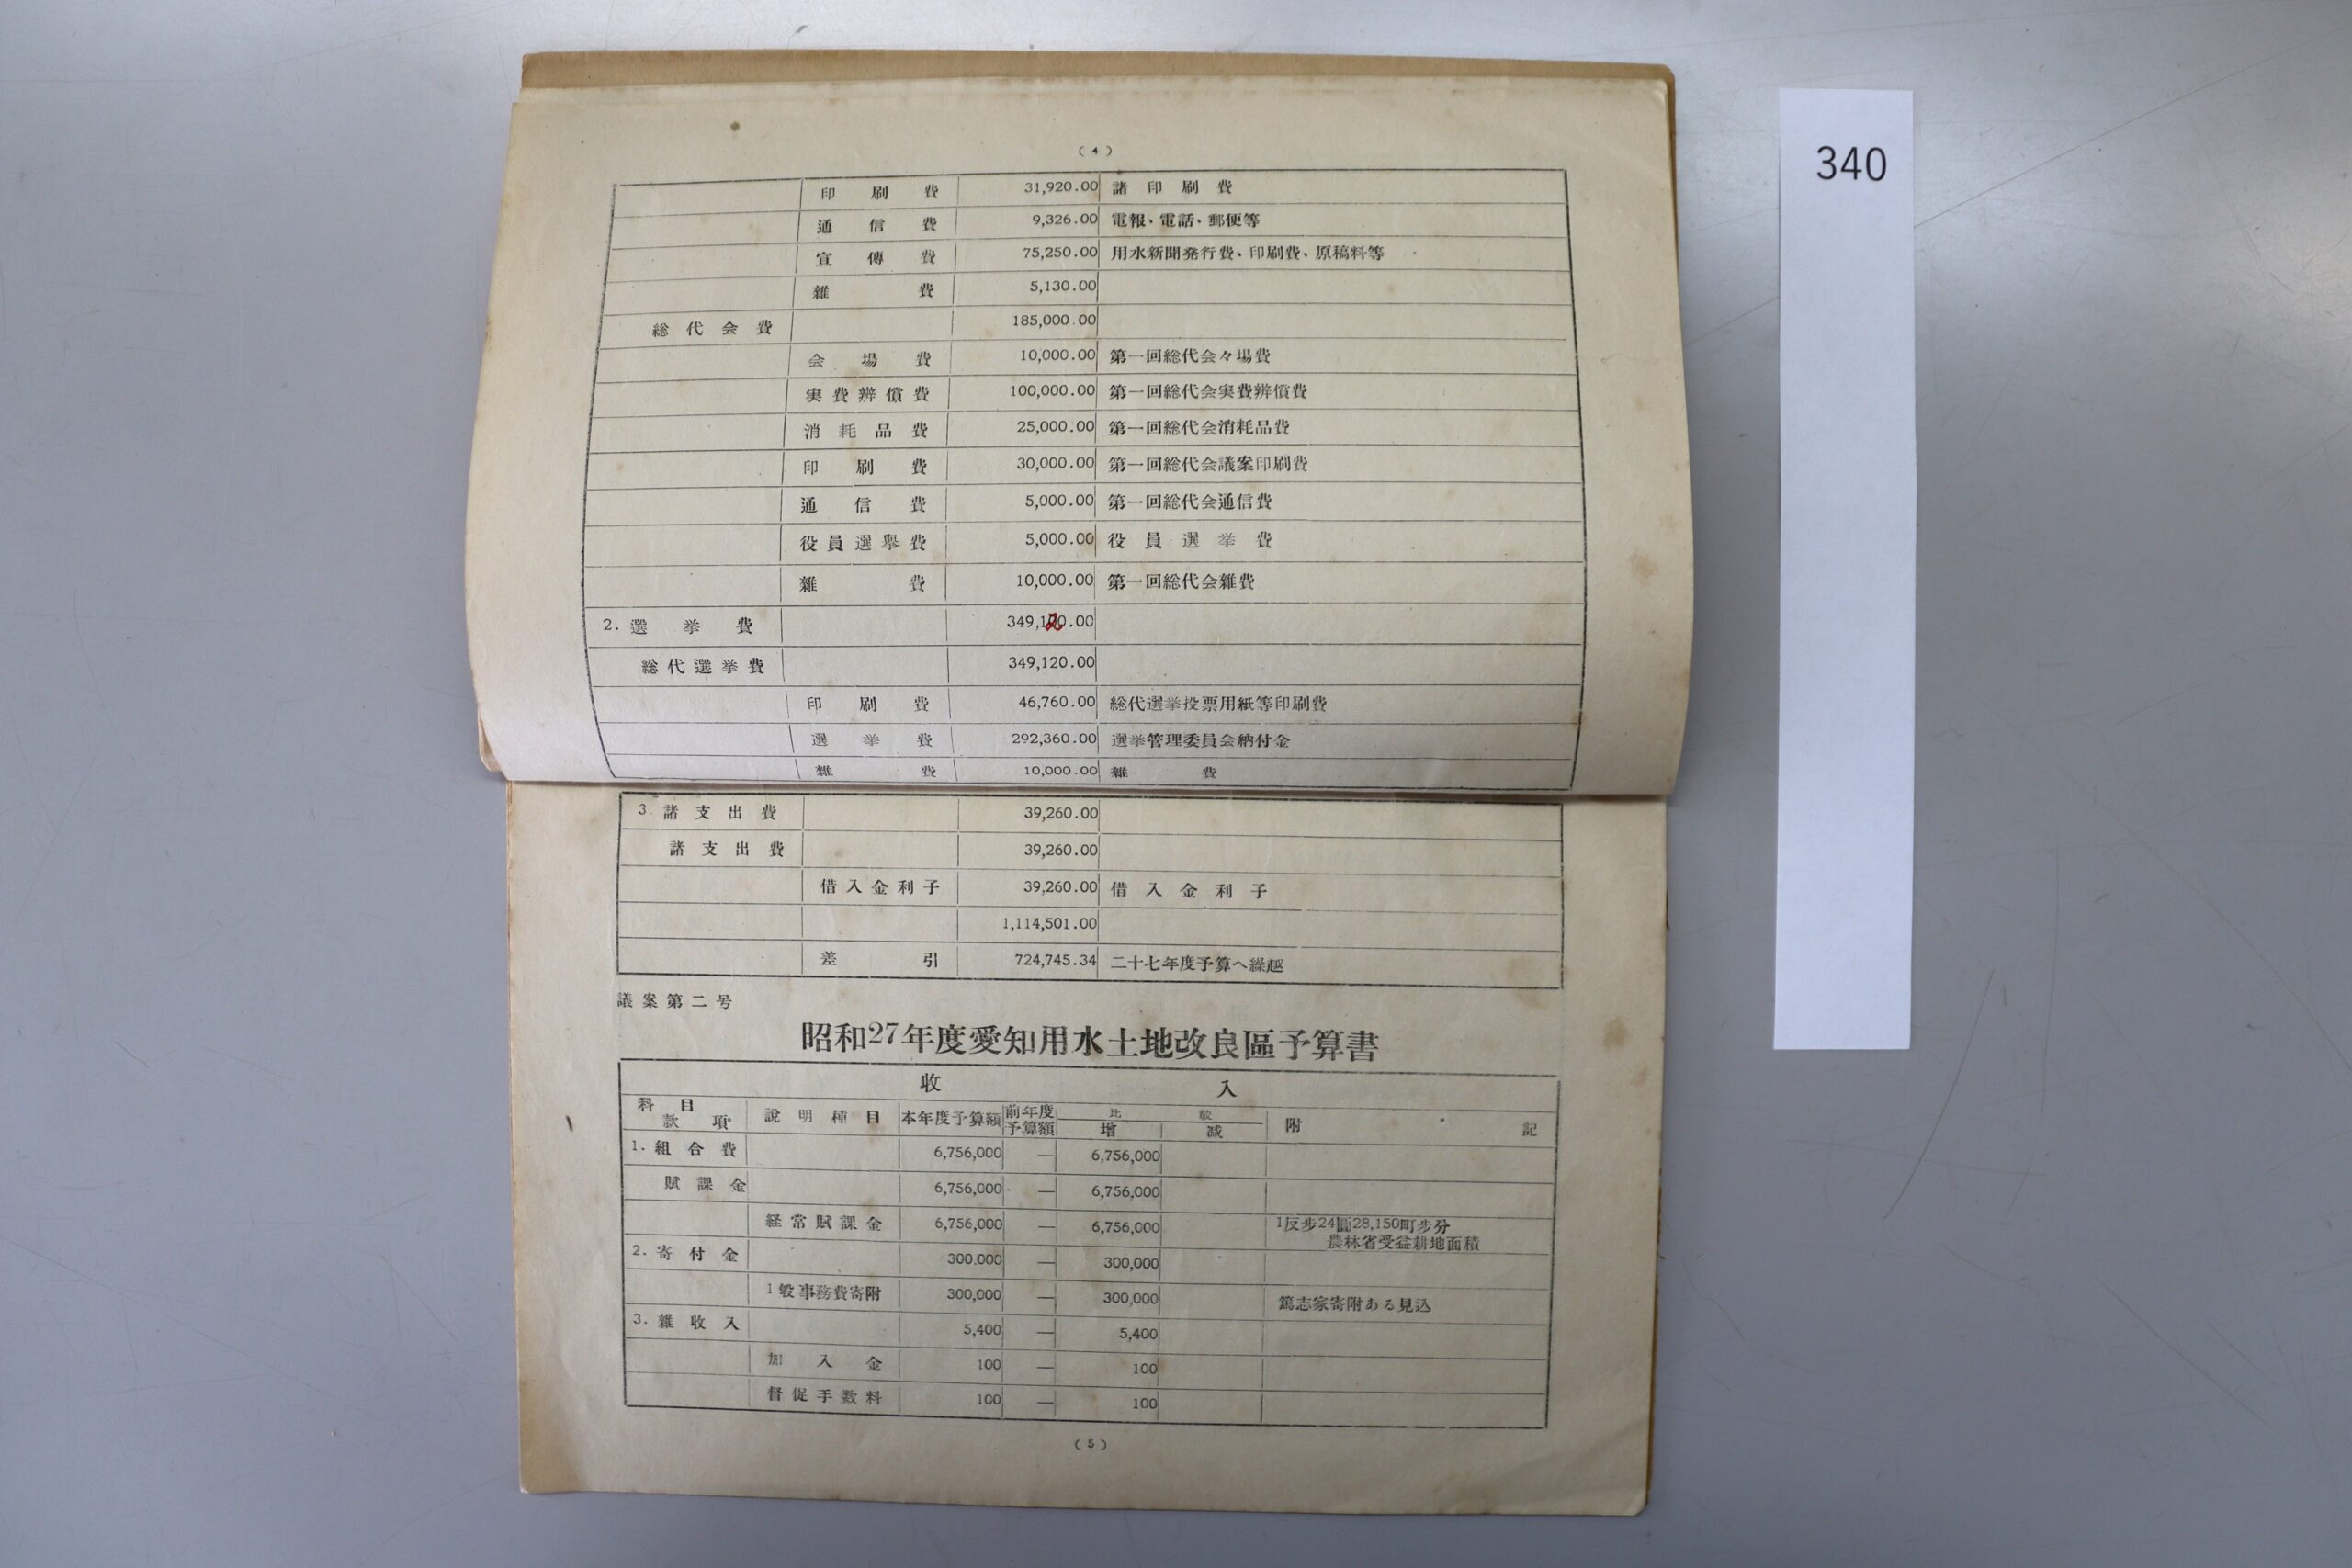 (4)
印刷費 31,920.00 諸印刷費
通信費 9,326.00 電報、電話、郵便等
宣傳費 75,250.00 用水新聞発行費、印刷費、原稿料等
雑費 5,130.00
総代会費 185,000.00
会場費 10,000.00 第一回総代会々場費
実費辨償費 100,000.00 第一回総代会実費辨償費
消耗品費 25,000.00 第一回総代会消耗品費
印刷費 30,000.00 第一回総代会議案印刷費
通信費 5,000.00 第一回総代会通信費
役員選挙費 5,000.00 役員選挙費
雑費 10,000.00 第一回総代会雑費
2. 選挙費 349,120.00
総代選挙費 349,120.00
印刷費 46,760.00 総代選挙投票用紙等印刷費
選挙費 292,360.00 選挙管理委員会納付金
雑費 10,000.00 雑費
3 諸支出費 39,260.00
諸支出費 39,260.00
借入金利子 39,260.00 借入金利子
1,114,501.00
差引 724,745.34 二十七年度予算へ繰越
議案第二号
昭和27年度愛知用水土地改良區予算書
収入
科目 款項 説明種目 本年度予算額 前年度予算額 比較 増 減 附記
1. 組合費 6,756,000 — 6,756,000
賦課金 6,756,000 — 6,756,000
経常賦課金 6,756,000 — 6,756,000 1反歩24圓28,150町歩分
農林省受益耕地面積
2. 寄付金 300.000 — 300,000
1般事務費寄附 300,000 — 300,000 篤志家寄附ある見込
3. 雑収入 5,400 — 5,400
加入金 100 — 100
督促手数料 100 — 100
(5)
340